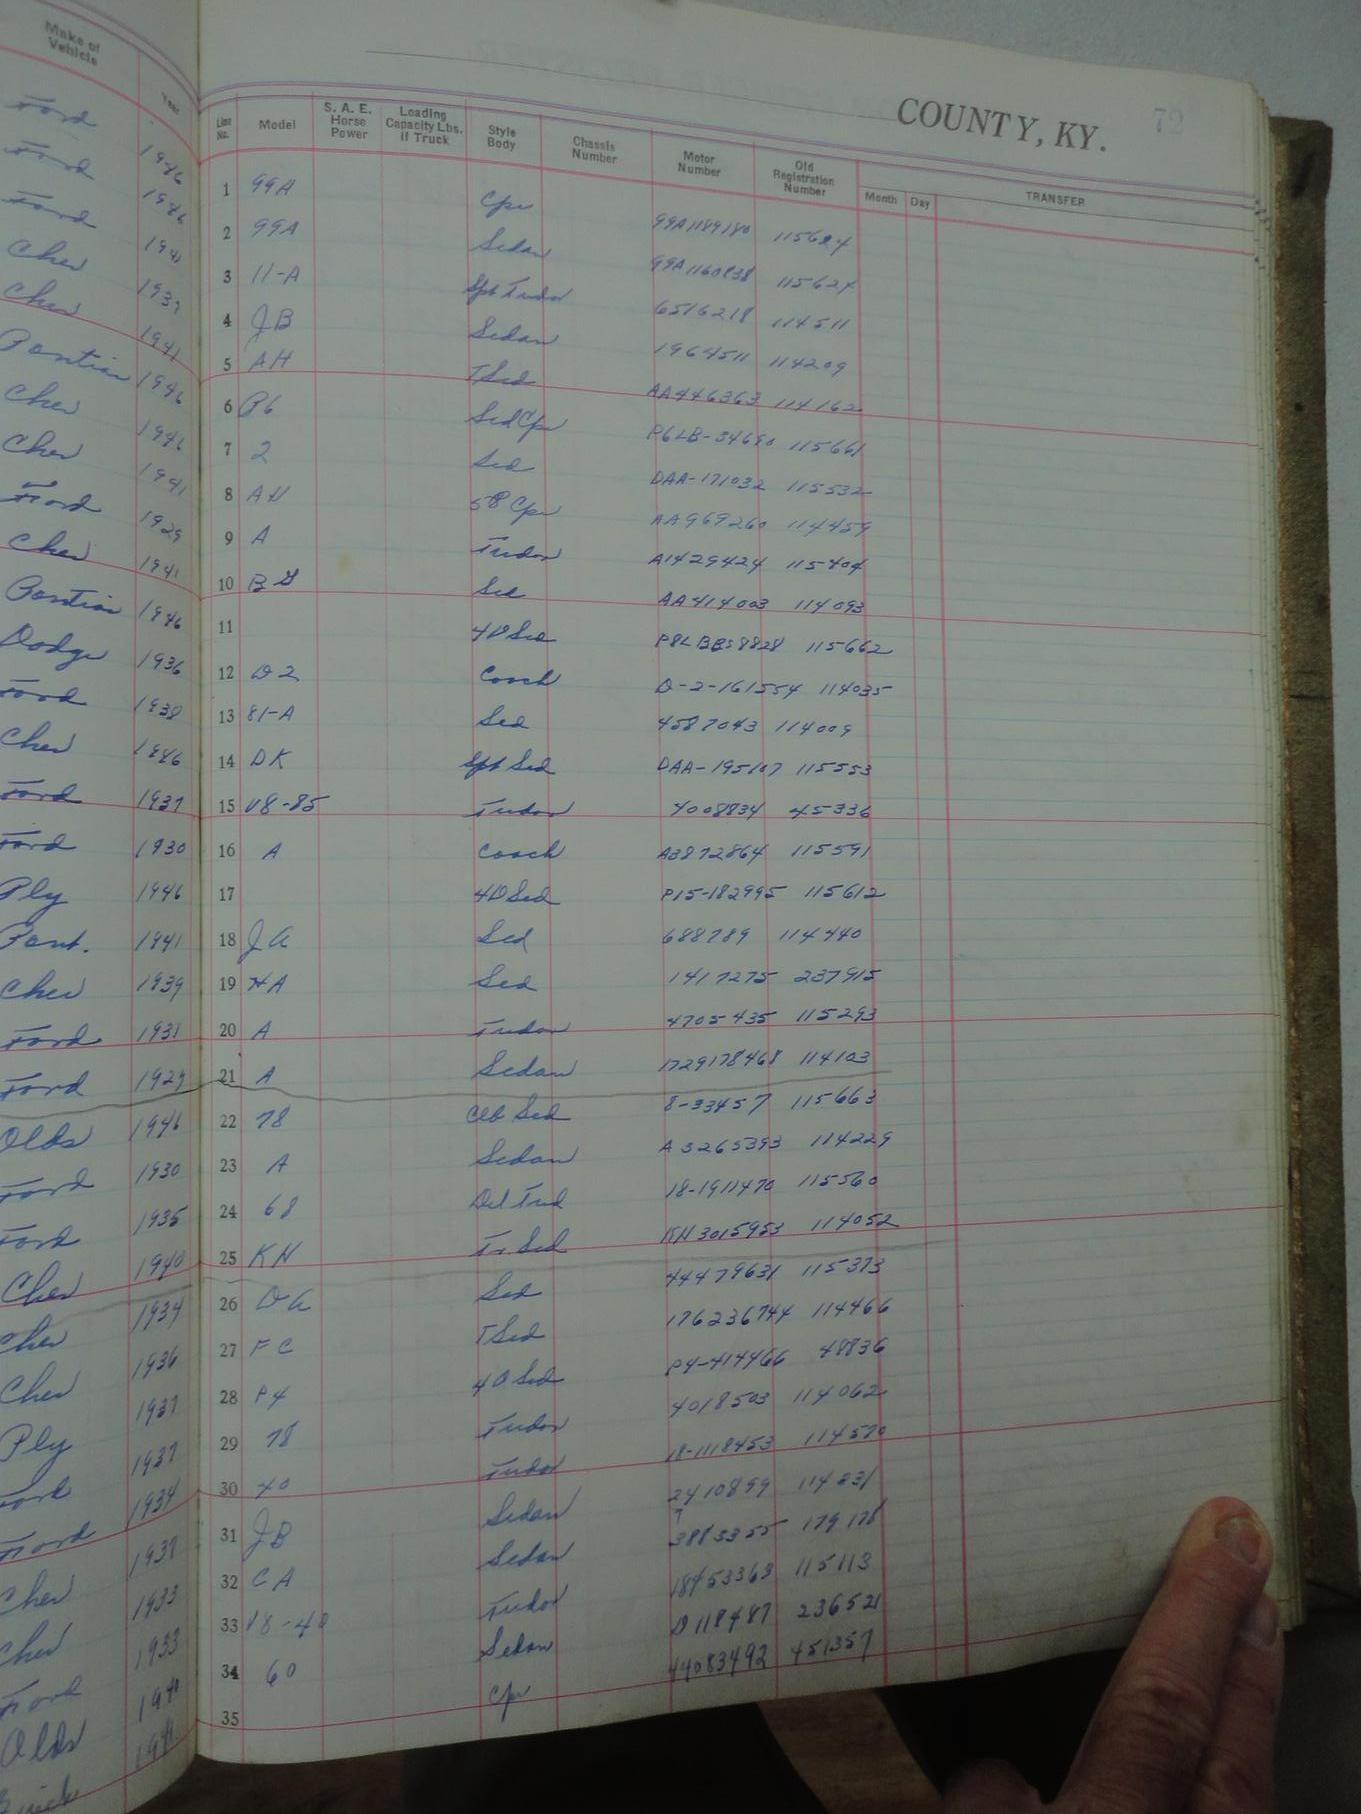 Make of Vehicle Year
COUNTY, KY. 72
Line No. Model S. A. E. Horse Power Loading Capacity Lbs. If Truck Style Body Chassis Number Motor Number Old Registration Number Month Day TRANSFER
Ford 1946 1 99A Cpe 99A1189180 115624
Ford 1946 2 99A Sedan 99A1160838 115624
Ford 1941 3 11-A Spt Tudor 6516218 114511
Chev 1937 4 JB Sedan 1964511 114209
Chev 1941 5 AH TSed AA446363 114162
Pontiac 1946 6 P6 SedCpe P6LB-34690 115661
Chev 1946 7 2 Sed DAA-171032 115532
Chev 1941 8 AH 5P Cpe AA969260 114459
Ford 1929 9 A Tudor A1429424 115404
Chev 1941 10 Sed AA414003 114093
Pontiac 1946 11 4DSed 115662
Dodge 1936 12 D2 Coach D-2-161554 114035
Ford 1938 13 81-A Sed 4587043 114009
Chev 1946 14 DK Spt Sed DAA-195107 115553
Ford 1937 15 V8-85 Tudor 4008834 45336
Ford 1930 16 A Coach A3872864 115591
Ply 1946 17 4DSed P15-182995 115612
Pont. 1941 18 JA Sed 688789 114440
Chev 1939 19 HA Sed 1417275 237915
Ford 1931 20 A Tudor 4705435 115293
Ford 1929 21 A Sedan 1729178468 114103
Olds 1946 22 78 Clb Sed 8-33457 115663
Ford 1930 23 A Sedan A3265393 114229
Ford 1935 24 68 Del Tud 18-1911470 115560
Chev 1940 25 KH Tr Sed KH3015953 114052
Chev 1934 26 DA Sed 44479631 115373
Chev 1936 27 FC TSed 176236744 114466
Ply 1937 28 P4 4DSed P4-414466 48836
Ford 1937 29 78 Tudor 4018503 114062
Ford 1934 30 40 Tudor 18-1118453 114570
Chev 1937 31 JB Sedan 2410899 114231
Chev 1933 32 CA Sedan 3883355 179178
Ford 1933 33 V8-40 Tudor 18453363 115113
Olds 34 60 Sedan D118487 236521
Buick 1941 35 Cpe 44083492 451357